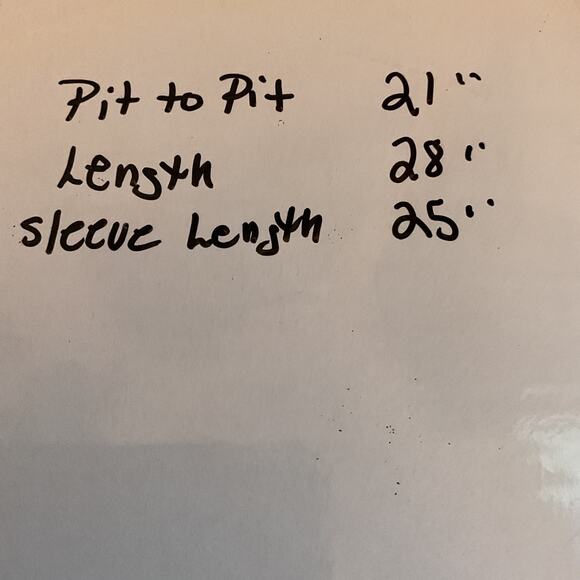 Pit to Pit 21"
Length 28"
Sleeve Length 25"